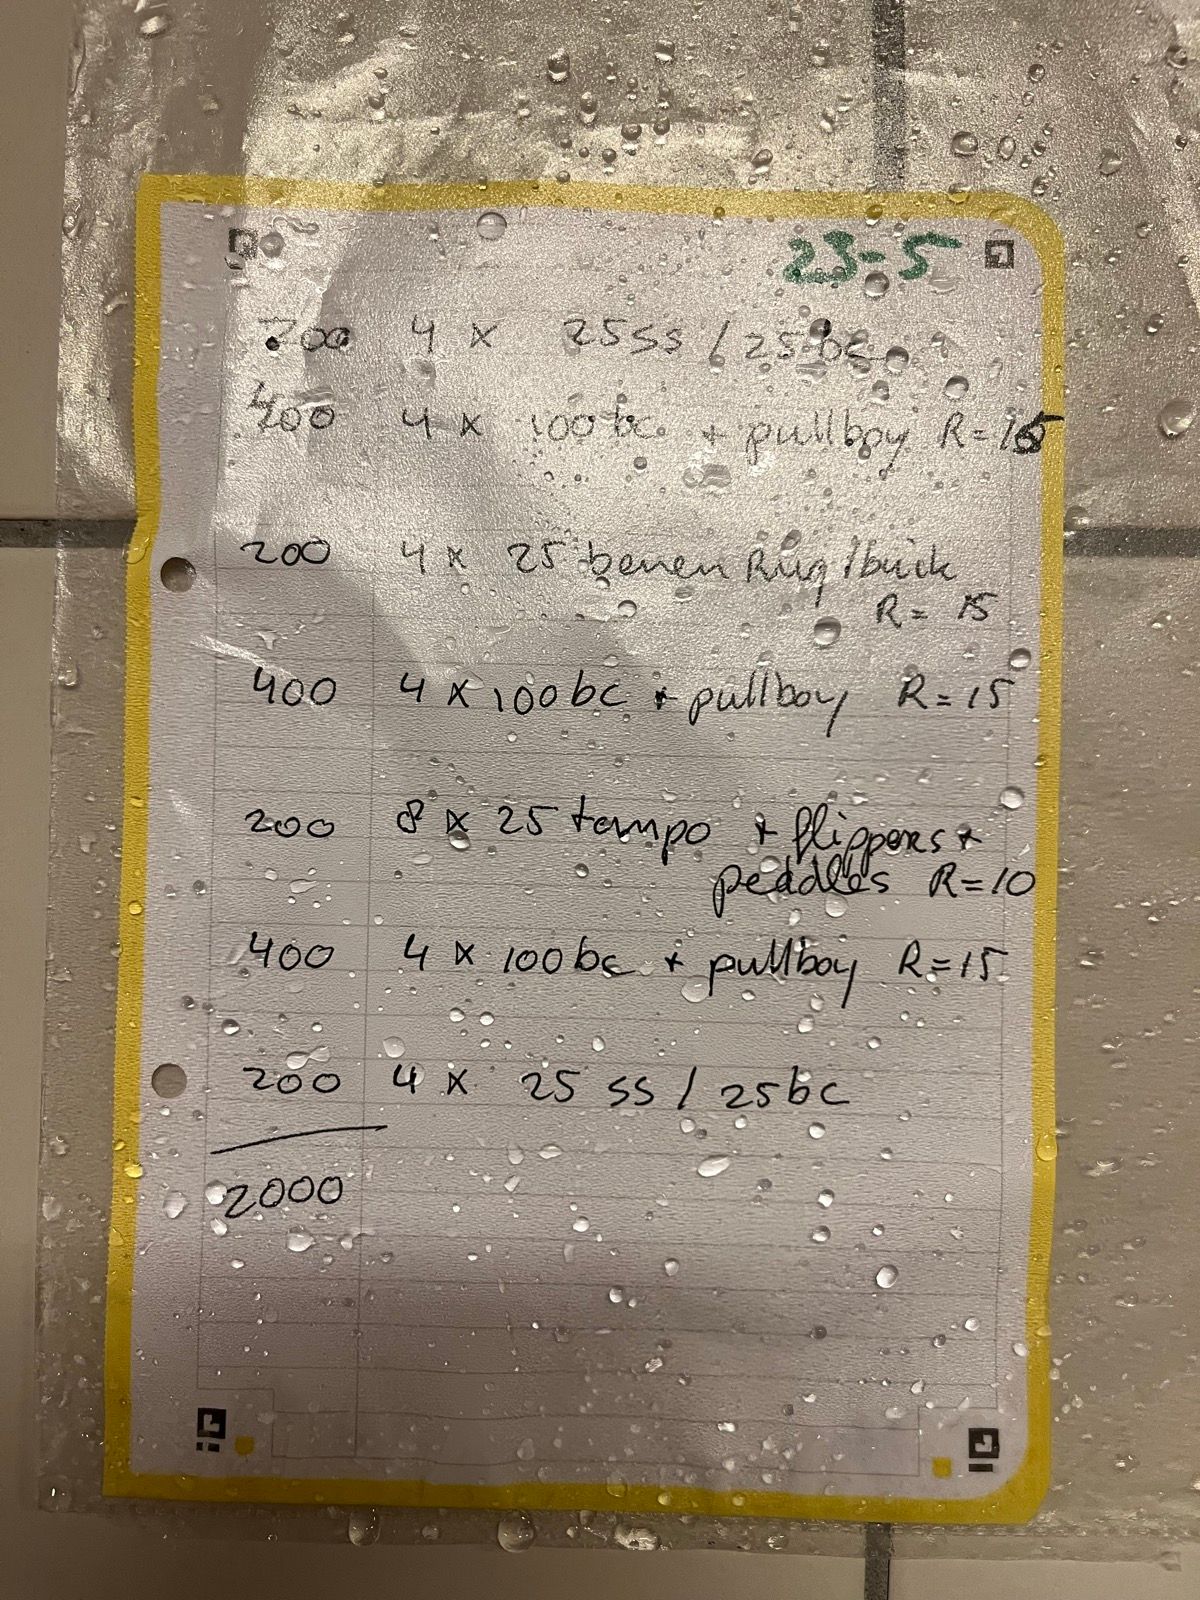 23-5
200 4 x 25ss / 25bc
400 4 x 100bc + pullboy R=15
200 4 x 25 benen Rug/buik
R= 15
400 4 x 100bc + pullboy R=15
200 8 x 25 tempo + flippers +
peddles R=10
400 4 x 100bc + pullboy R=15
200 4 x 25 ss / 25bc
2000